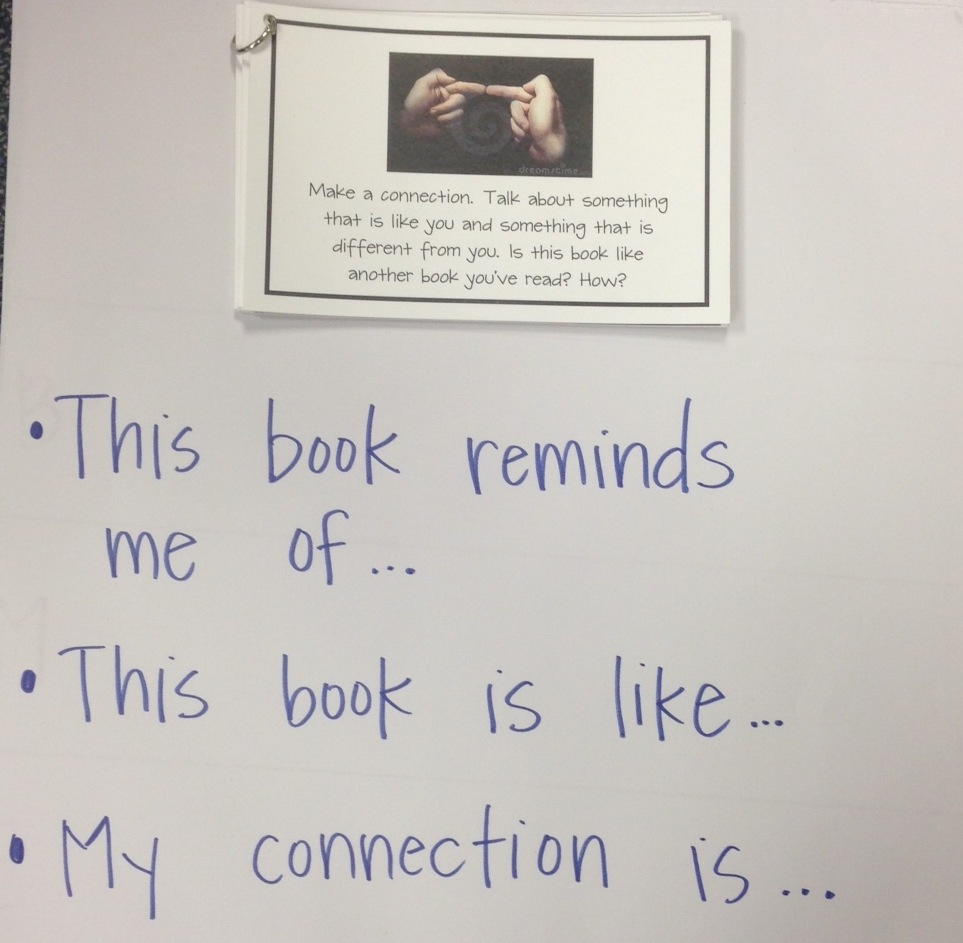 dreamstime
Make a connection. Talk about something
that is like you and something that is
different from you. Is this book like
another book you've read? How?
• This book reminds
me of...
• This book is like...
• My connection is...